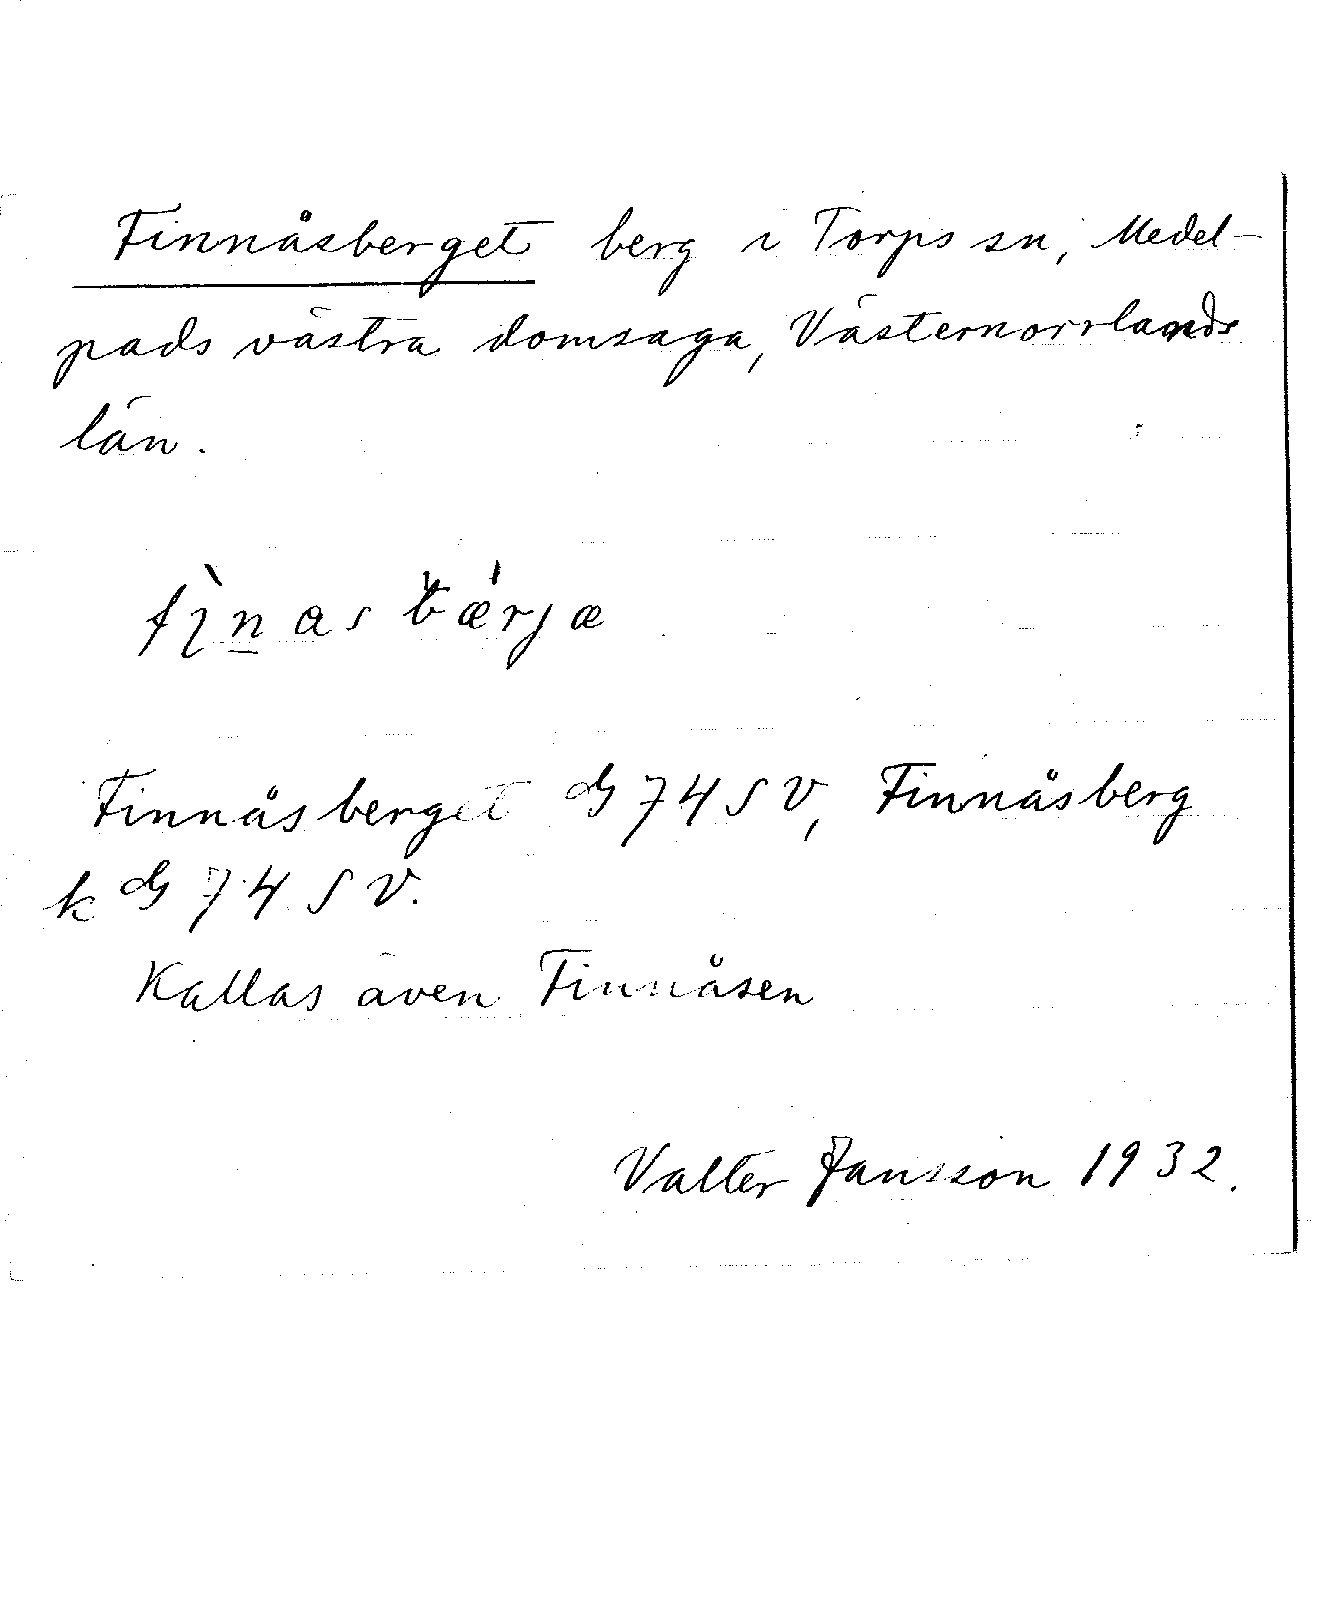 Finnåsberget berg i Torps sn, Medel-
pads västra domsaga, Västernorrlands
län.
fìnasbǽrjæ
Finnåsberget GS 74 SV, Finnåsberg
k GS 74 SV.
Kallas även Finnåsen
Valter Jansson 1932.